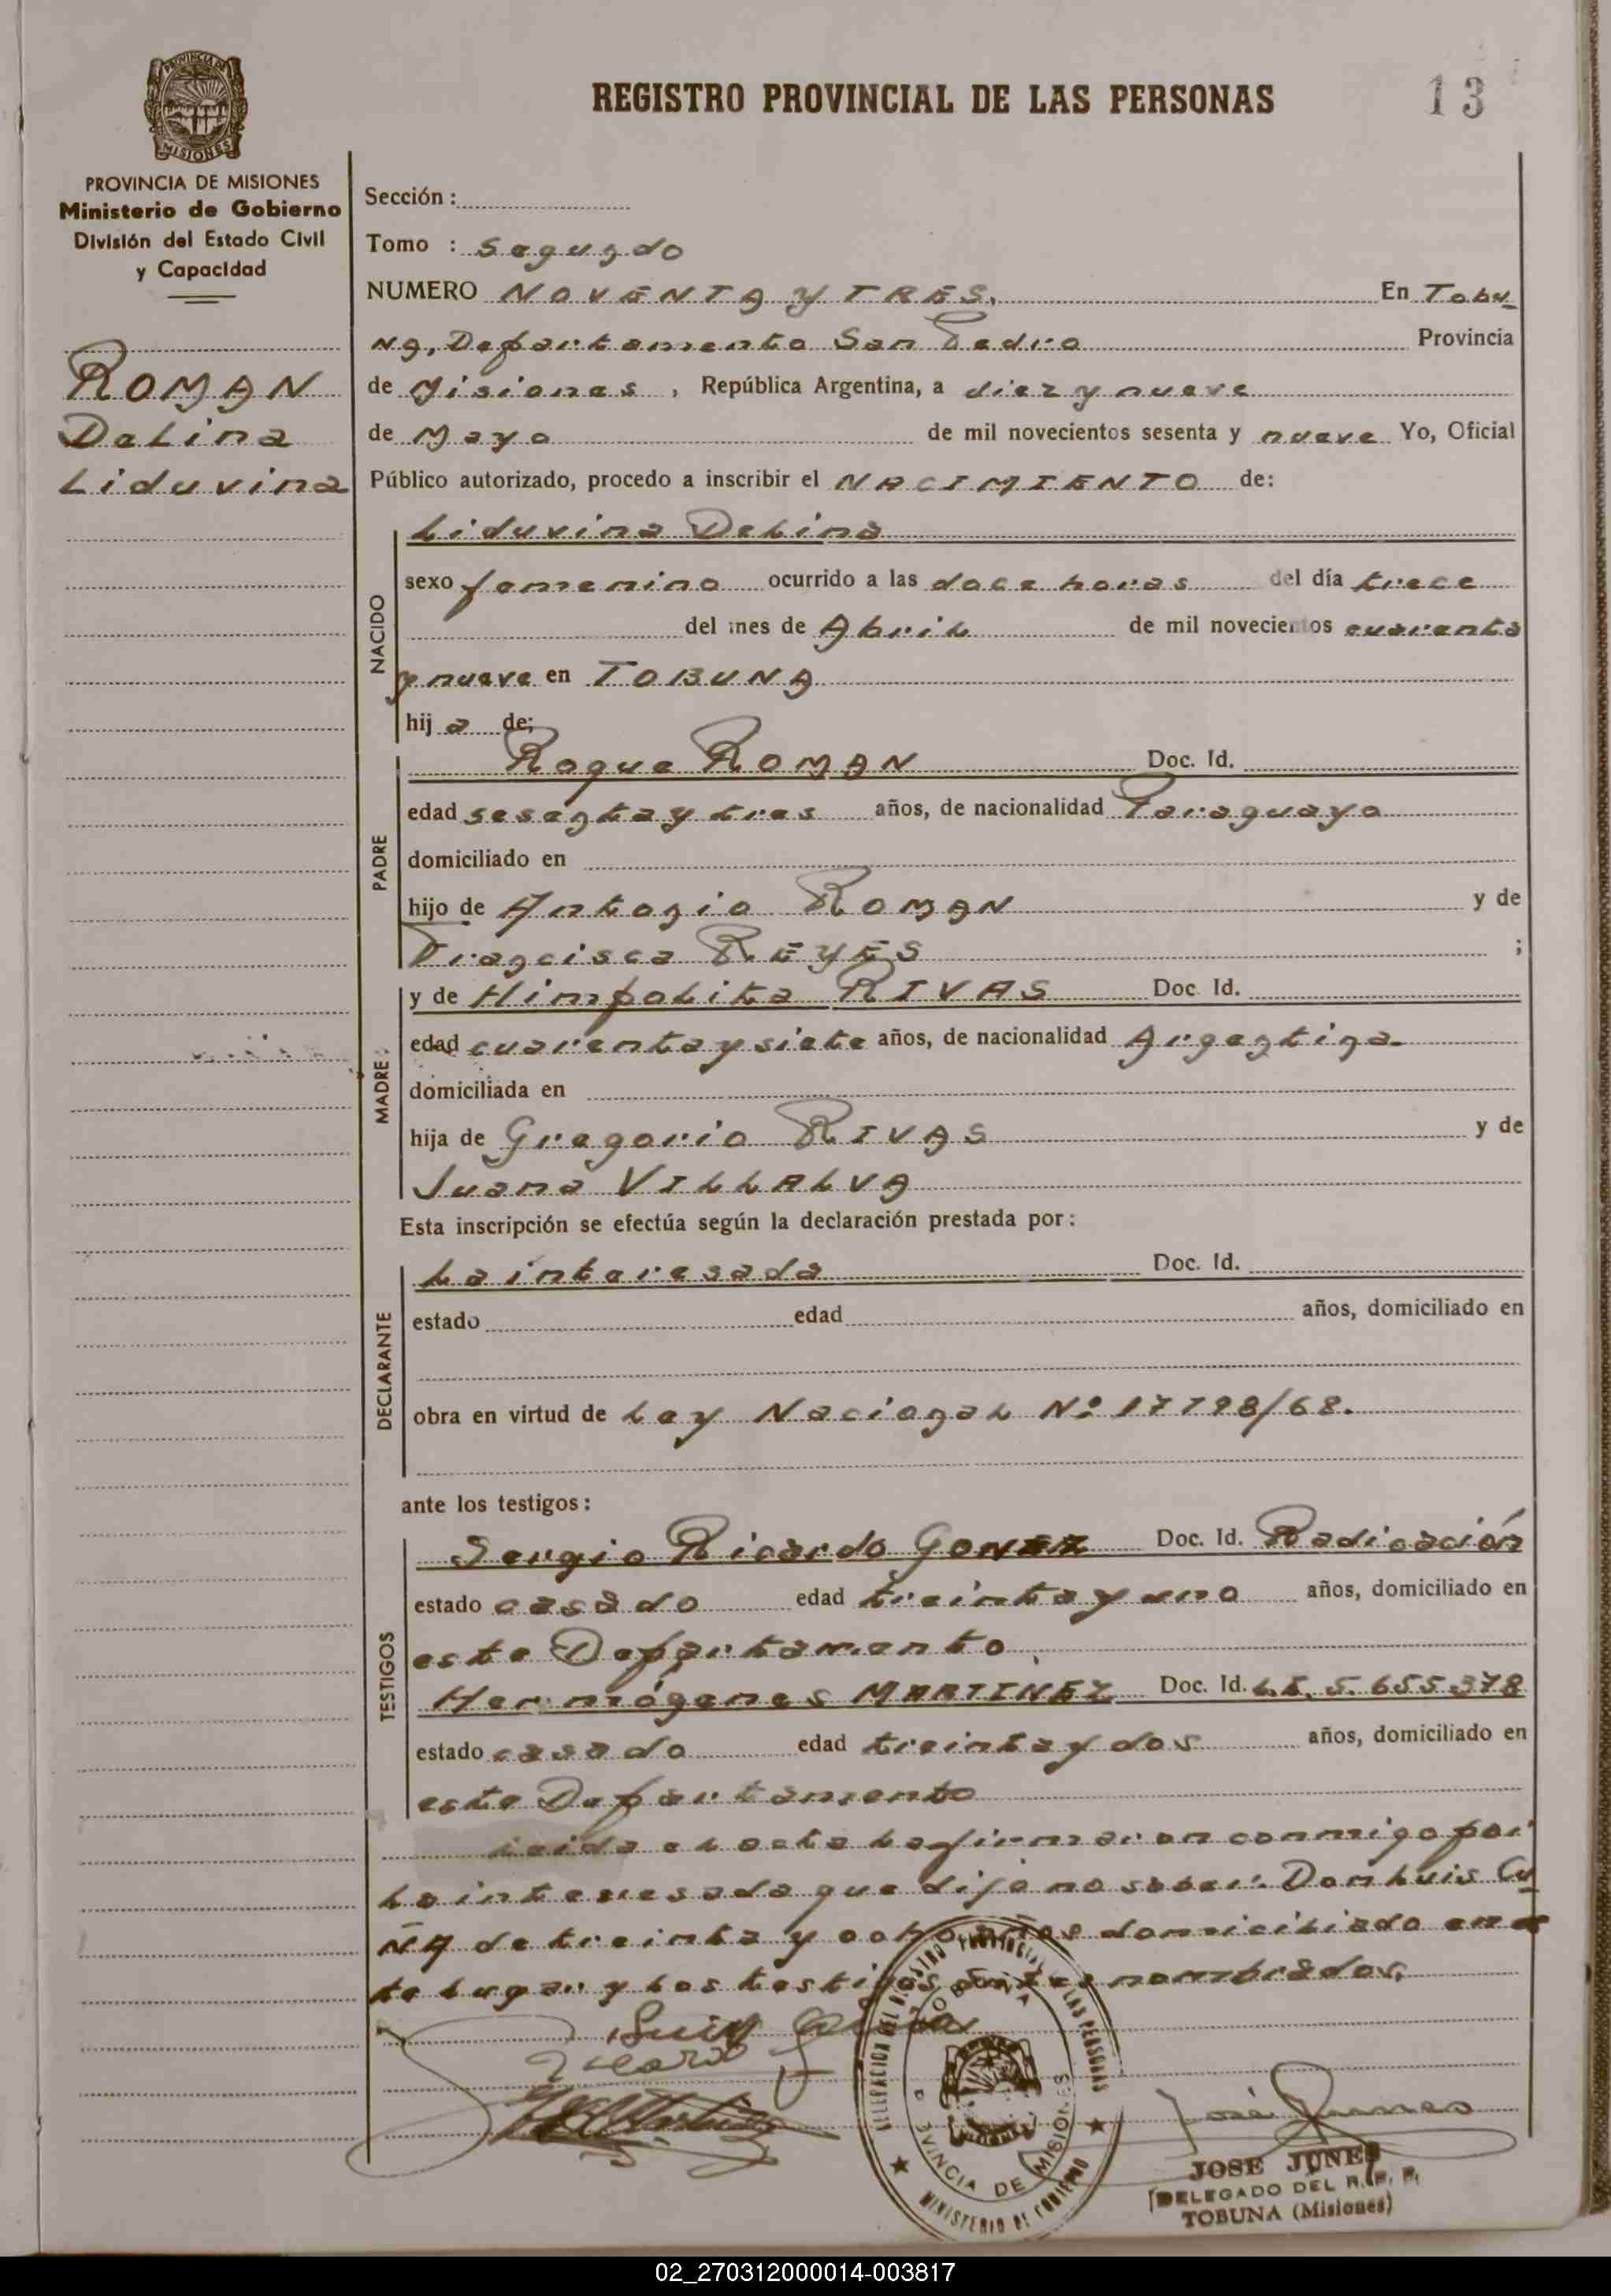 REGISTRO PROVINCIAL DE LAS PERSONAS
13
PROVINCIA DE MISIONES
Ministerio de Gobierno
División del Estado Civil
y Capacidad
ROMAN
Delina
Liduvina
Sección :
Tomo : Segundo
NUMERO NOVENTA Y TRES. En Tobu
na, Departamento San Pedro Provincia
de Misiones , República Argentina, a diez y nueve
de Mayo de mil novecientos sesenta y nueve Yo, Oficial
Público autorizado, procedo a inscribir el NACIMIENTO de:
NACIDO
Liduvina Delina
sexo femenino ocurrido a las doce horas del día trece
del mes de Abril de mil novecientos cuarenta
y nueve en TOBUNA
hij a de;
PADRE
Roque ROMAN Doc. Id.
edad sesenta y tres años, de nacionalidad Paraguaya
domiciliado en
hijo de Antonio ROMAN y de
Francisca REYES ;
MADRE
y de Himpolita RIVAS Doc. Id.
edad cuarenta y siete años, de nacionalidad Argentina.
domiciliada en
hija de Gregorio RIVAS y de
Juana VILLALVA
Esta inscripción se efectúa según la declaración prestada por :
DECLARANTE
La interesada Doc. Id.
estado edad años, domiciliado en
obra en virtud de Ley Nacional Nº 17798/68.
ante los testigos :
TESTIGOS
Sergio Ricardo Doc. Id. Radicación
estado casado edad treinta y uno años, domiciliado en
este Departamento
Hermógenes MARTINEZ Doc. Id. L.E. 5.655.378
estado casado edad treinta y dos años, domiciliado en
este Departamento
Leida el acta la firmaron conmigo por
la interesada que dijo no saber: Don Luis Cu
ÑA de treinta y ocho años domiciliado en es
te lugar y los testigos antes nombrados.
DELEGACION DEL REGISTRO PROVINCIAL DE LAS PERSONAS
TOBUNA
PROVINCIA DE MISIONES
MINISTERIO DE GOBIERNO
José Junes
JOSE JUNES
DELEGADO DEL R. P. P.
TOBUNA (Misiones)
02_270312000014-003817